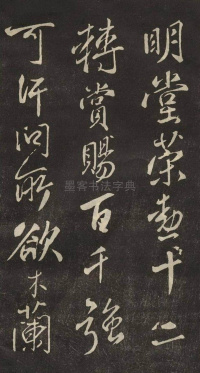 明堂策勳十二
轉賞賜百千強
可汗問所欲木蘭
墨客书法字典